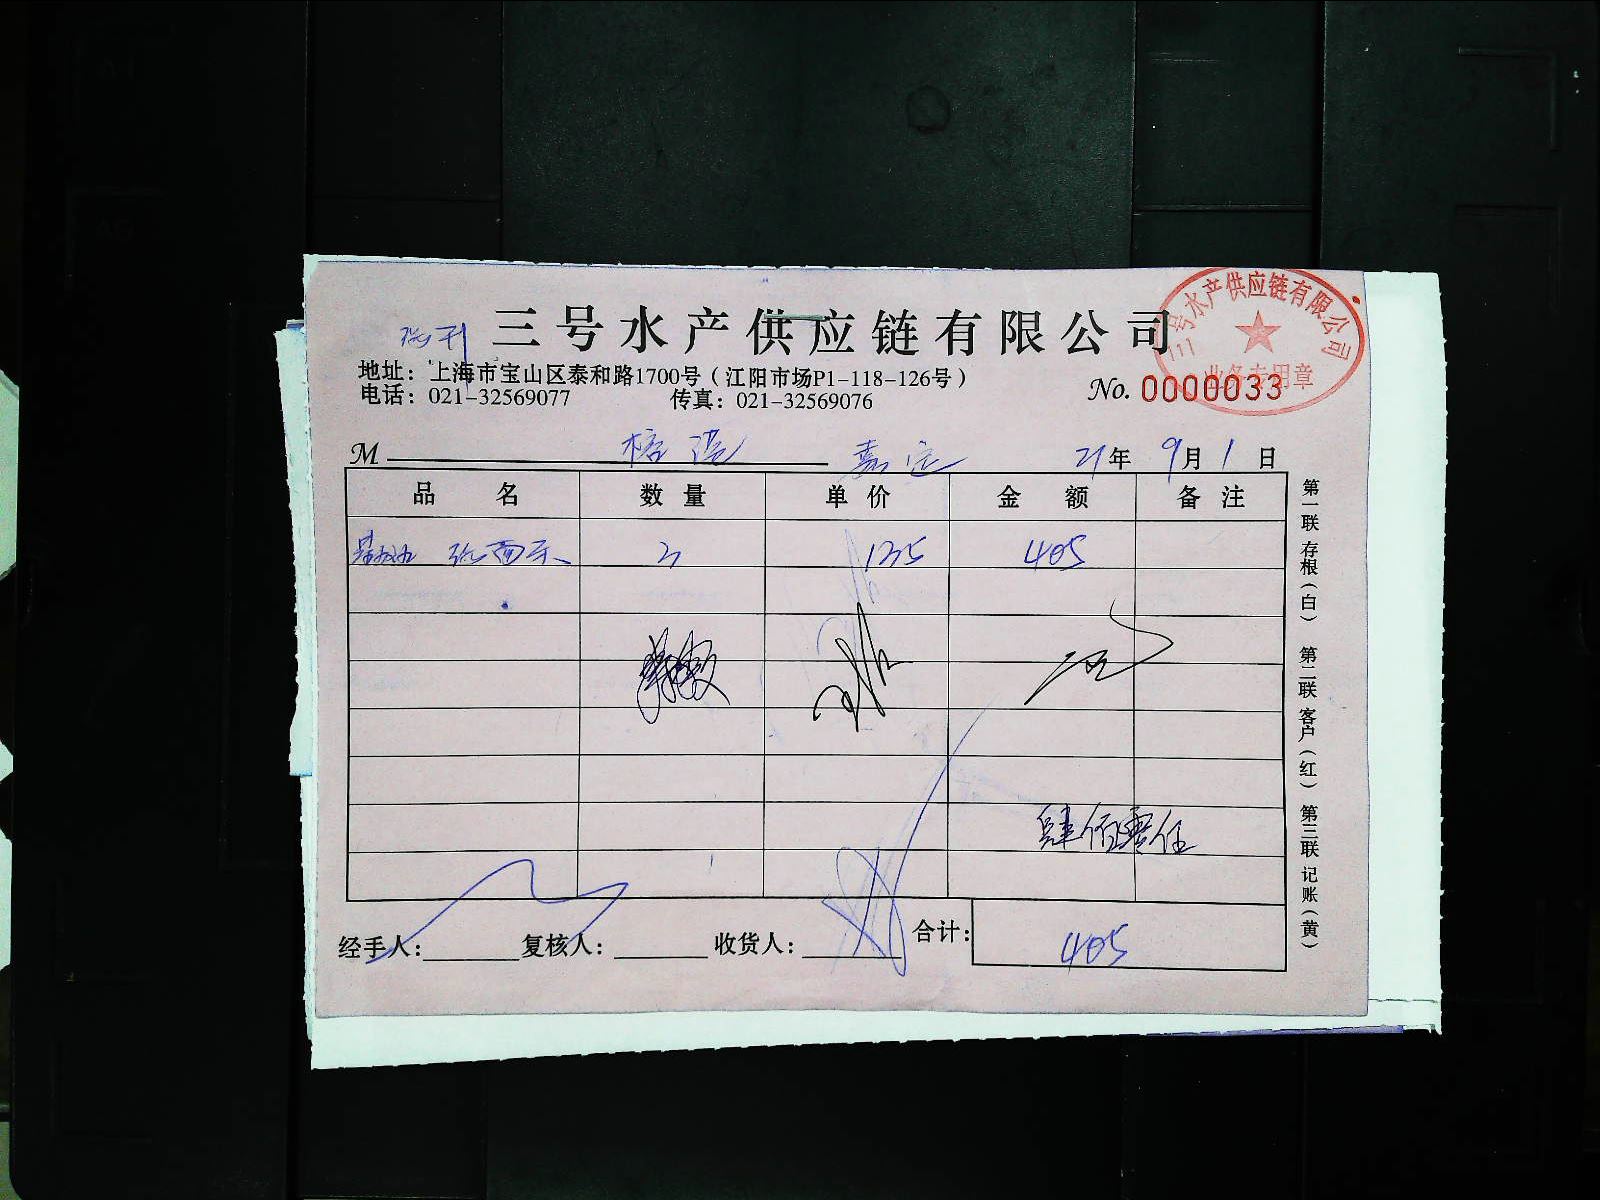 三号水产供应链有限公司
地址：上海市宝山区泰和路1700号（江阳市场P1-118-126号）
电话：021-32569077 传真：021-32569076
No. 0000033
号水产供应链有限公司
业务专用章
M 榕港 嘉定 21年 9月 1日
品名 数量 单价 金额 备注
3 135 405
肆佰零伍
经手人： 复核人： 收货人： 合计： 405
第一联 存根（白） 第二联 客户（红） 第三联 记账（黄）